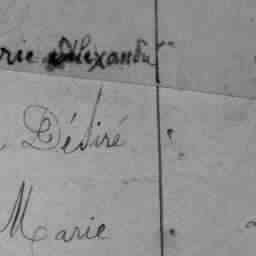 rie Alexandre
Désiré
Marie